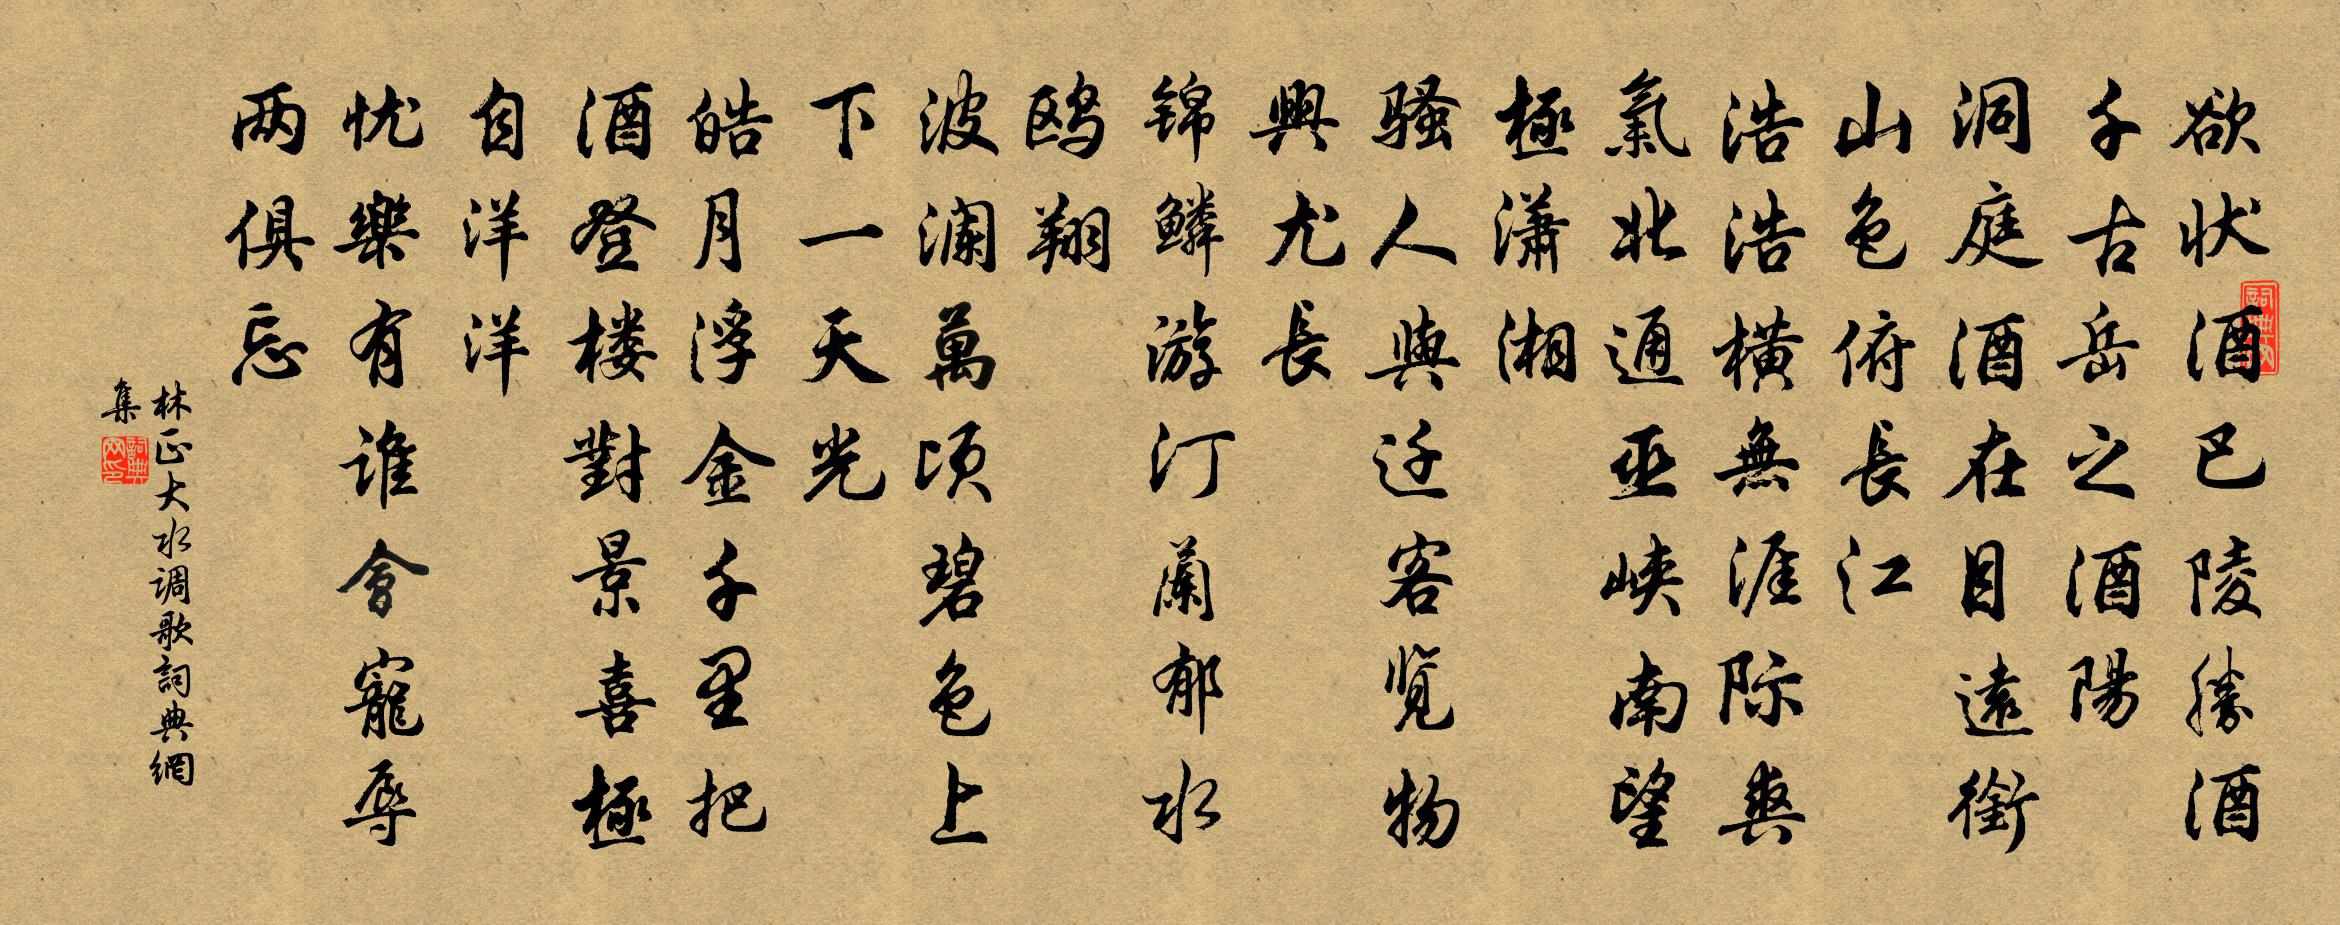 欲状酒巴陵勝酒
千古岳之酒陽
洞庭酒在目遠銜
山色俯長江
浩浩橫無涯际爽
氣北通巫峡南望
極潇湘
骚人與迁客览物
興尤長
锦鳞游汀蘭郁水
鸥翔
波澜萬顷碧色上
下一天光
皓月浮金千里把
酒登楼對景喜極
自洋洋
忧樂有谁會寵辱
两俱忘
林正大水调歌詞典網
集